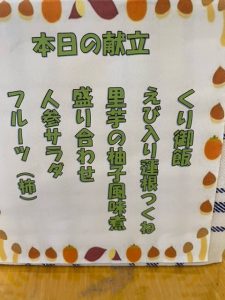 本日の献立
くり御飯
えび入り蓮根つくね
里芋の柚子風味煮
盛り合わせ
人参サラダ
フルーツ（柿）